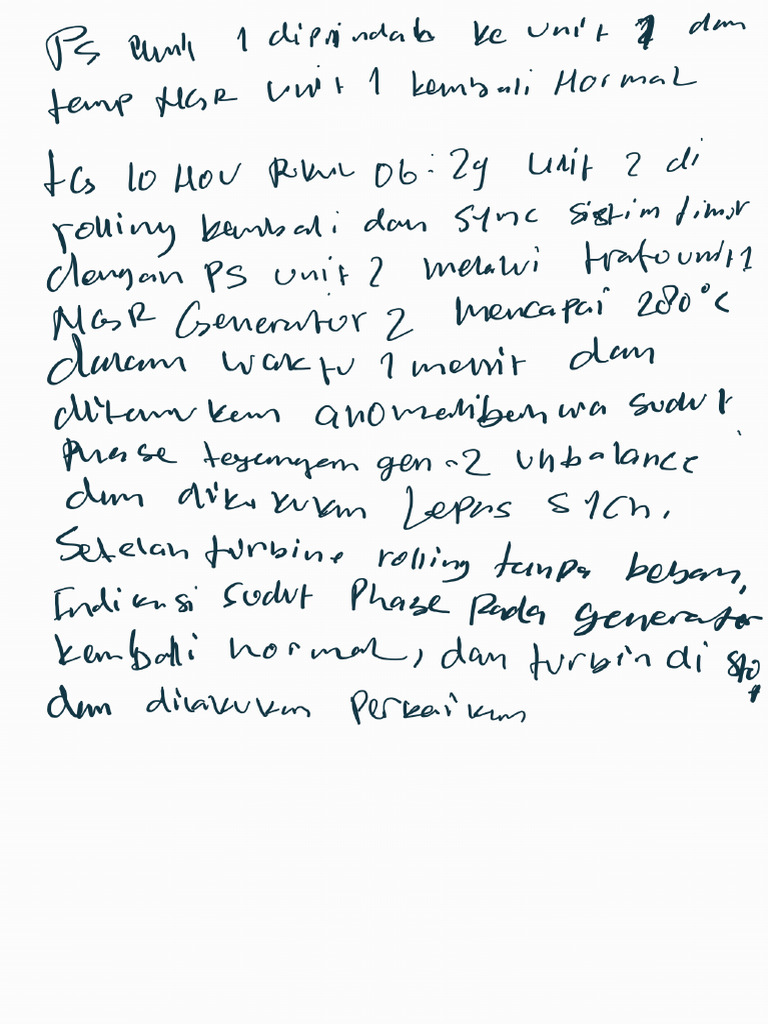 PS unit 1 dipindah ke unit 1 dan
temp NGR unit 1 kembali Normal
tgs 10 Nov Pkul 06:29 unit 2 di
rolling kembali dan sync sistim timur
dengan PS unit 2 melalui trafo unit 1
NGR Generator 2 mencapai 280°C
dalam waktu 1 menit dan
ditemukan anomali bahwa sudut
Phase tegangan gen-2 unbalance
dan dilakukan Lepas s1cn.
Setelah turbine rolling tanpa beban,
Indikasi sudut Phase Pada generator
kembali normal, dan turbin di stop
dan dilakukan Perbaikan